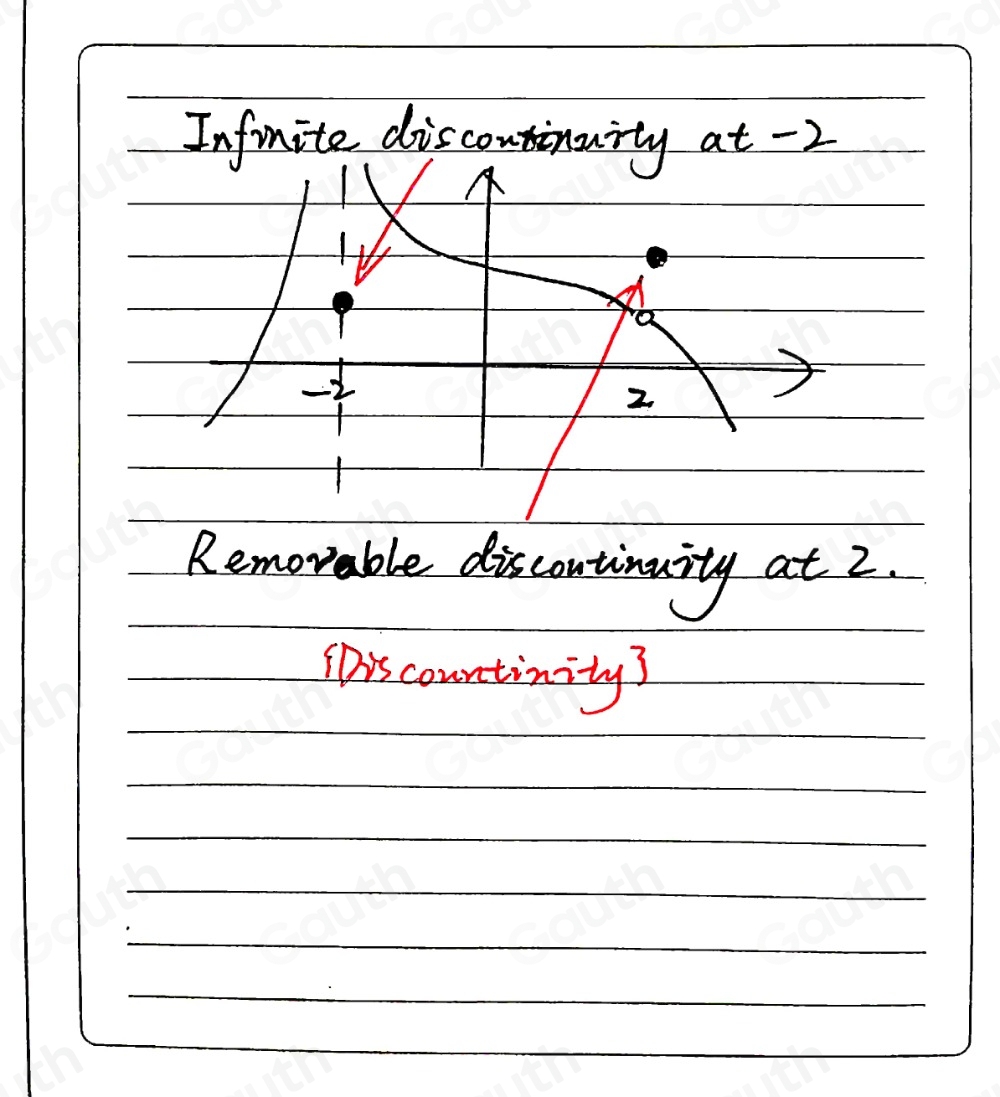 Infinite discontinuity at -2
-2
2
Removable discontinuity at 2.
{Discountinity}